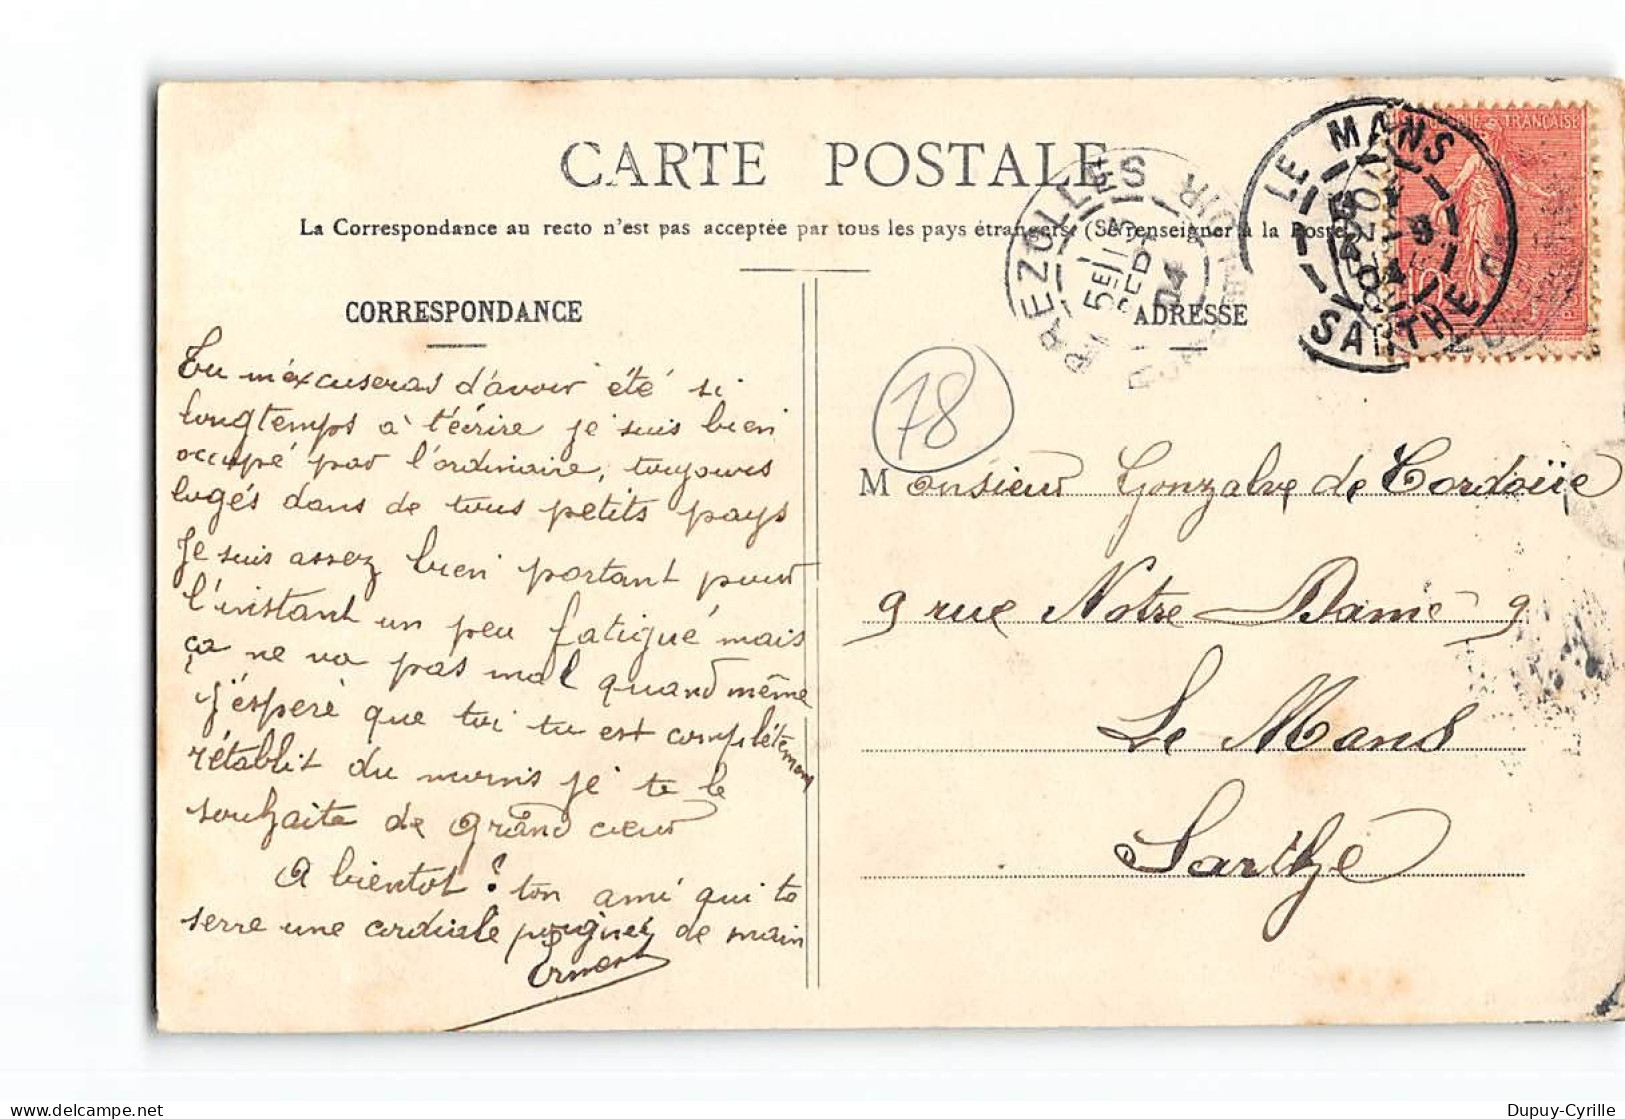 CARTE POSTALE
La Correspondance au recto n'est pas acceptée par tous les pays étrangers (Se renseigner à la Poste)
CORRESPONDANCE
Tu m'éxcuseras d'avoir été si
longtemps à t'écrire je suis bien
occupé par l'ordinaire, toujours
logés dans de tous petits pays
Je suis assez bien portant pour
l'instant un peu fatigué mais
ça ne va pas mal quand même
J'éspère que toi tu est complétement
rétablit du je te le
souhaite de grand cœur
A bientot ? ton ami qui te
serre une cordiale poignée de main
Ernest
ADRESSE
78
Monsieur Gonzalve de Cordoüe
9 rue Notre-Dame 9
Le Mans
Sarthe
LE MANS
SARTHE
BREZOLLES
SEPT
04
EURE ET LOIR
FRANÇAISE
Dupuy-Cyrille